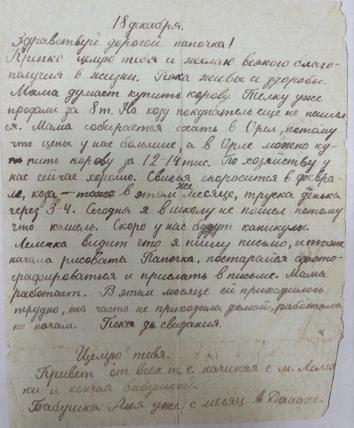 18 декабря.
Здравствуй дорогой папочка!
Крепко целую тебя и желаю всякого благо-
получия в жизни. Пока живы и здоровы.
Мама думает купить корову. Телку уже
продали за 8 т. На козу покупатель ещё не нашел
ся. Мама собирается ехать в Орел, потому
что цены у нас большие, а в Орле можно ку-
пить корову за 12-14 тыс. По хозяйству у
нас сейчас хорошо. Свинья опоросится в февра
ле, коза — тоже в этом же месяце, труска денька
через 3-4. Сегодня я в школу не пошел потому
что кашель. Скоро у нас будут каникулы.
Лемка видит что я пишу письмо, и тоже
начала рисовать. Папочка, постарайся сфото-
графироваться и прислать в письме. Мама
работает. В этом месяце ей приходилось
трудно, она часто не приходила домой, работала
по ночам. Пока до свидания.
Целую тебя.
Привет от всех т. е. начиная с м.
ки и кончая бабушкой.
Бабушка Аня уже с месяц в